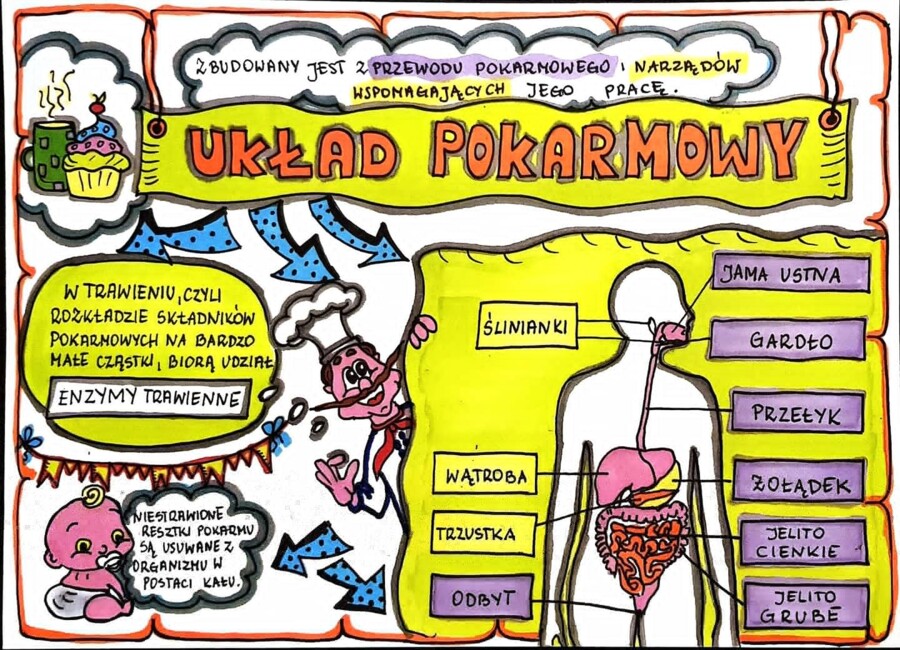 ZBUDOWANY JEST Z PRZEWODU POKARMOWEGO I NARZĄDÓW
WSPOMAGAJĄCYCH JEGO PRACĘ.
UKŁAD POKARMOWY
W TRAWIENIU, CZYLI
ROZKŁADZIE SKŁADNIKÓW
POKARMOWYCH NA BARDZO
MAŁE CZĄSTKI, BIORĄ UDZIAŁ
ENZYMY TRAWIENNE
NIESTRAWIONE
RESZTKI POKARMU
SĄ USUWANE Z
ORGANIZMU W
POSTACI KAŁU.
ŚLINIANKI
WĄTROBA
TRZUSTKA
ODBYT
JAMA USTNA
GARDŁO
PRZEŁYK
ŻOŁĄDEK
JELITO
CIENKIE
JELITO
GRUBE